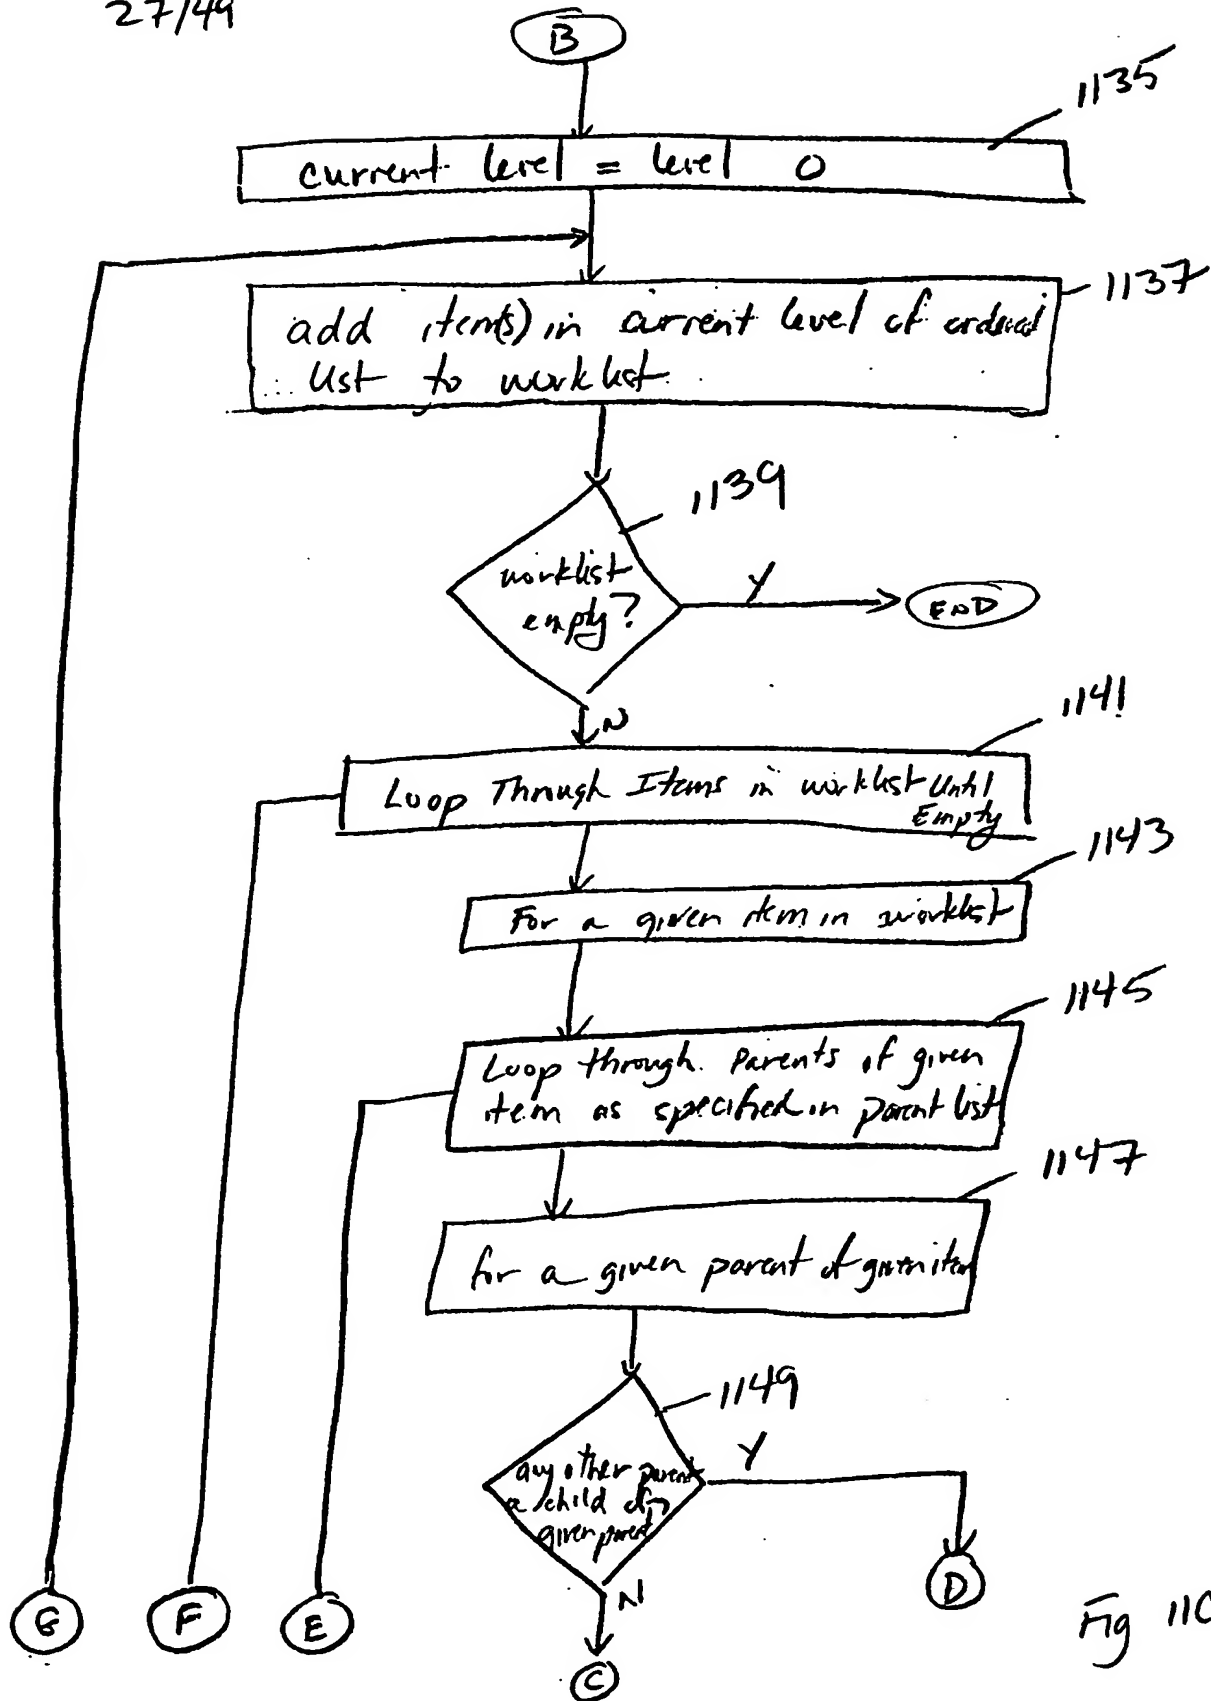 27/49
B
1135
current level = level 0
1137
add item(s) in current level of ordered
list to worklist
1139
worklist
empty?
Y
END
N
1141
Loop Through Items in worklist Until
Empty
1143
For a given item in worklist
1145
Loop through parents of given
item as specified in parent list
1147
for a given parent of given item
1149
any other parent
a child of
given parent
Y
N
D
G
F
E
C
Fig 11C